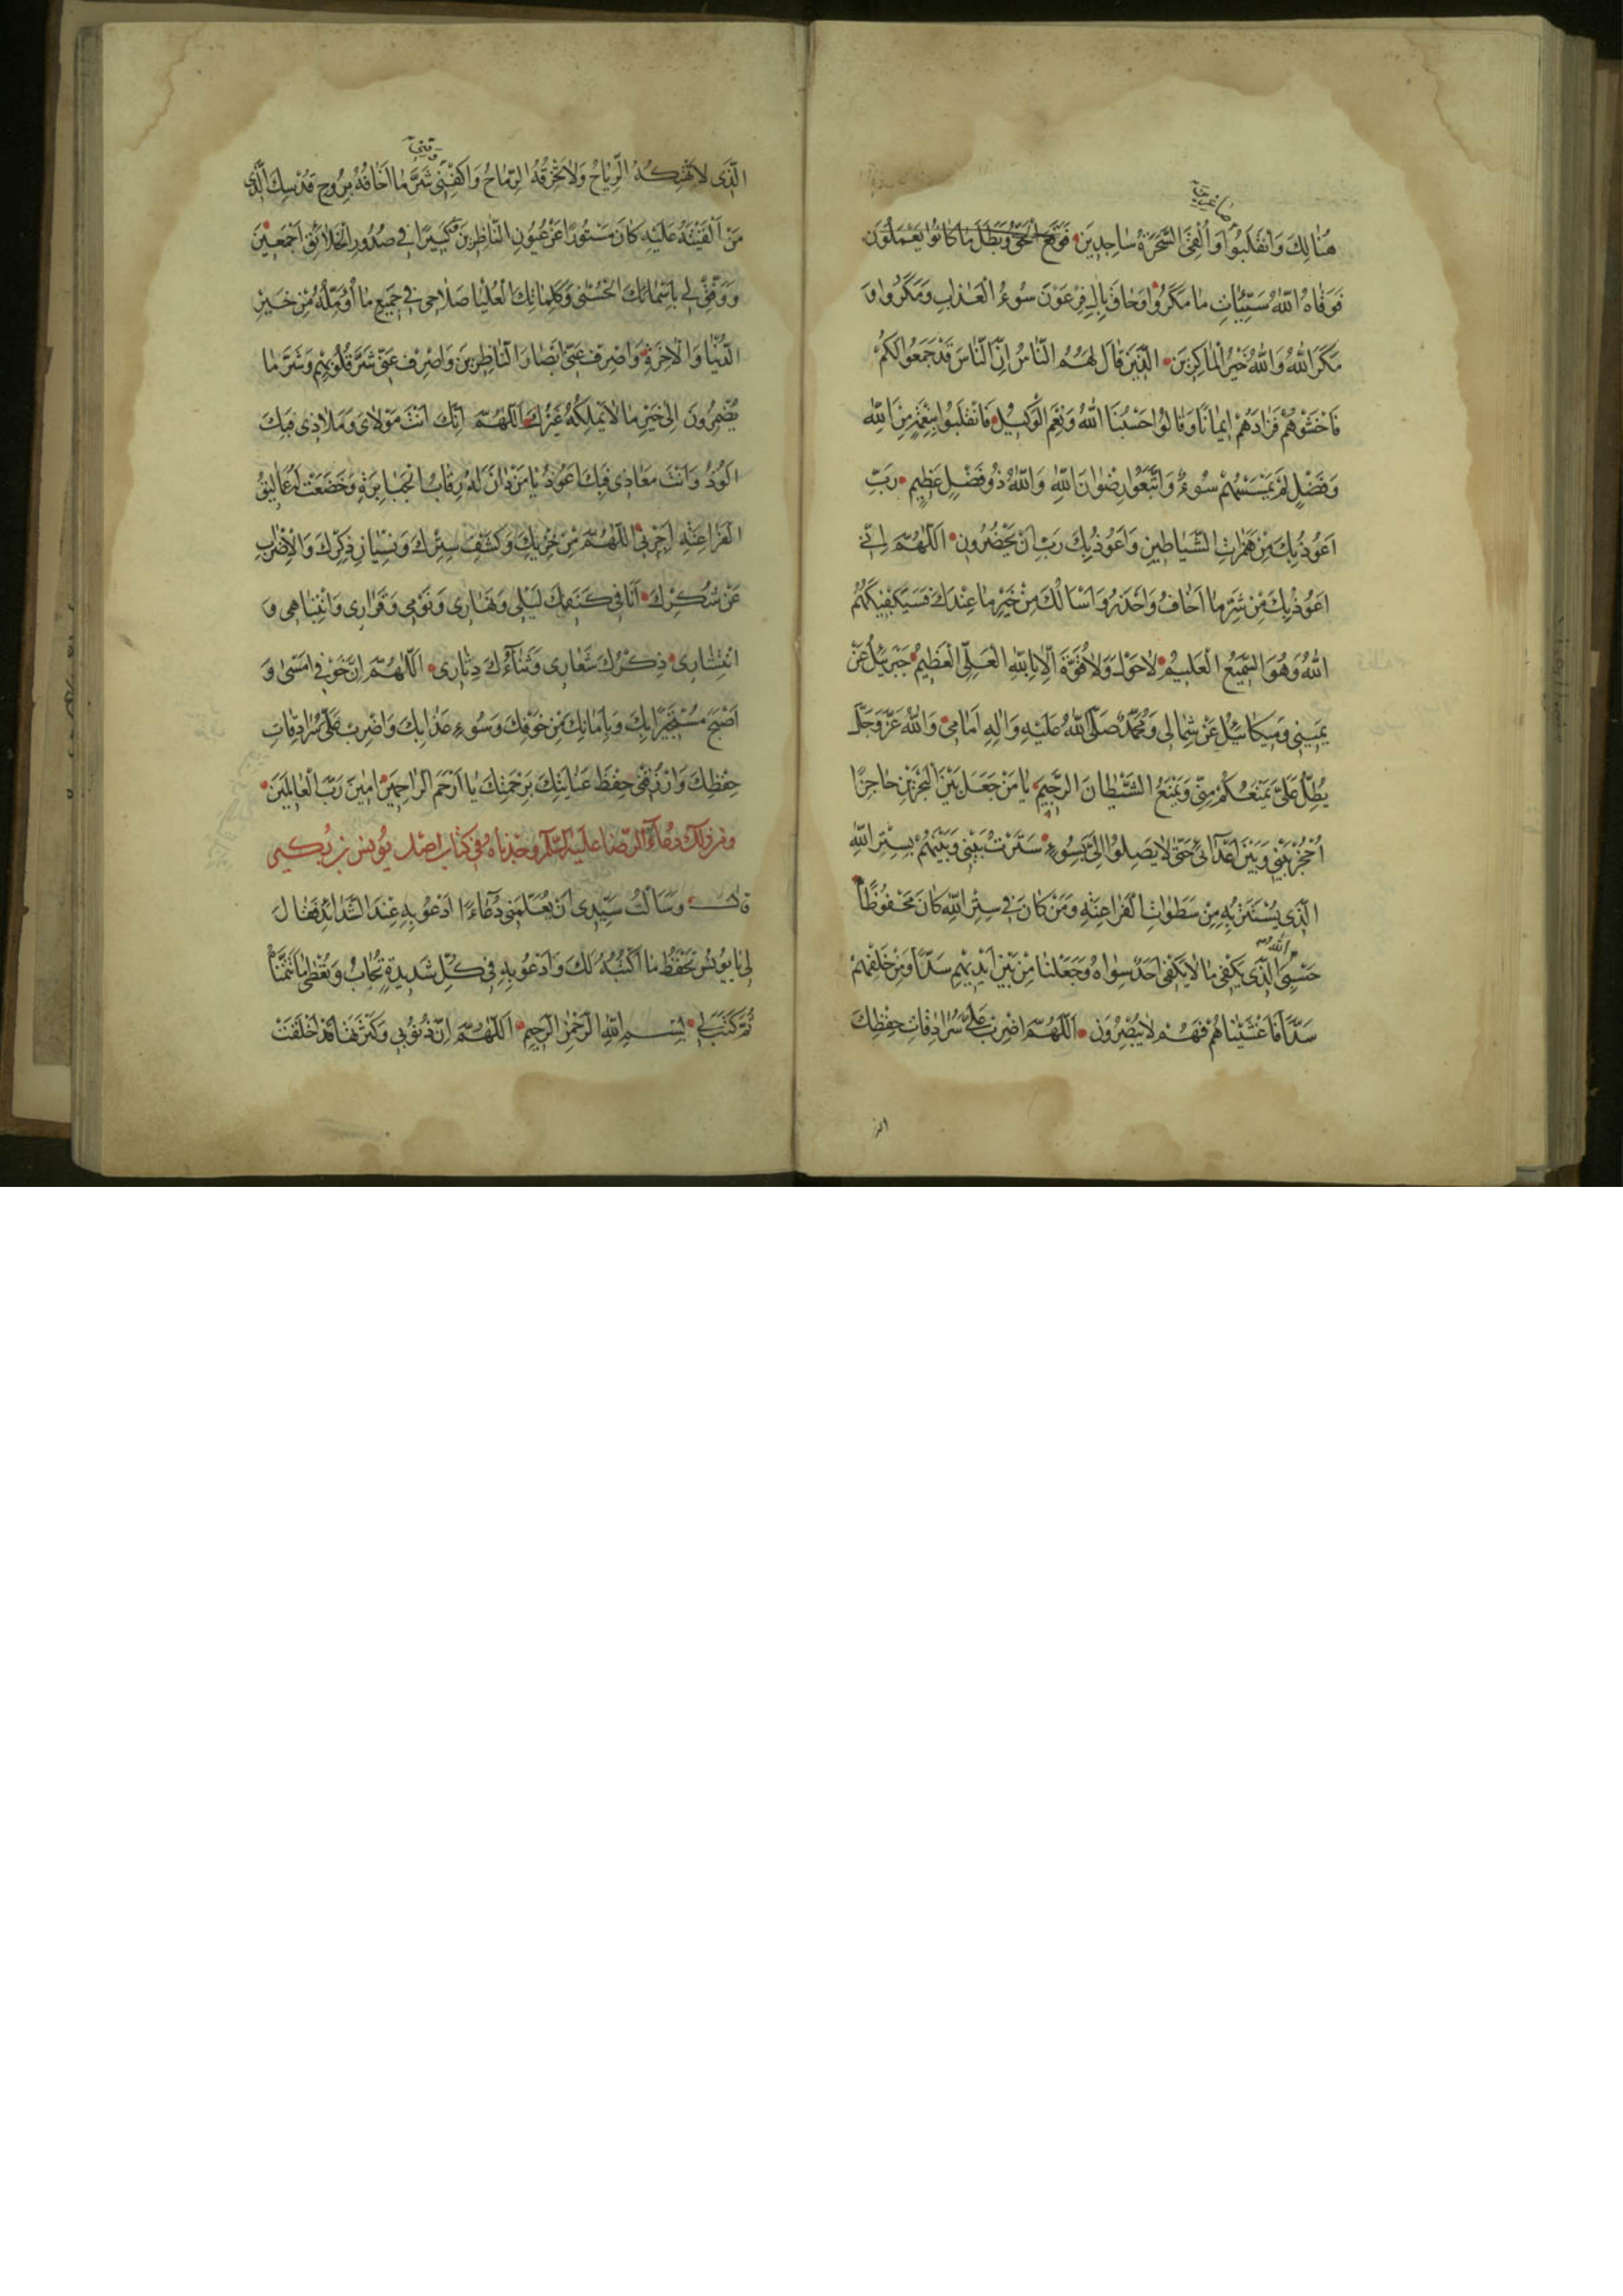 صاغرين
هُنالِكَ وَانْقَلَبُوا وَاُلْقِىَ السَّحَرَةُ ساجِدينَ فَوَقَعَ الْحَقُّ وَبَطَلَ ما كانُوا يَعْمَلُونَ
فَوَقاهُ اللهُ سَيِّئاتِ ما مَكَرُوا وَحاقَ بِالِ فِرْعَوْنَ سُوءُ الْعَذابِ وَمَكَرُوا وَ
مَكَرَ اللهُ وَاللهُ خَيْرُ الْماكِرينَ الَّذينَ قالَ لَهُمُ النّاسُ اِنَّ النّاسَ قَدْ جَمَعُوا لَكُمْ
فَاخْشَوْهُمْ فَزادَهُمْ ايمانًا وَقالُوا حَسْبُنَا اللهُ وَنِعْمَ الْوَكيلُ فَانْقَلَبُوا بِنِعْمَةٍ مِنَ اللهِ
وَفَضْلٍ لَمْ يَمْسَسْهُمْ سُوءٌ وَاتَّبَعُوا رِضْوانَ اللهِ وَاللهُ ذُو فَضْلٍ عَظيمٍ رَبِّ
اَعُوذُ بِكَ مِنْ هَمَزاتِ الشَّياطينِ وَاَعُوذُ بِكَ رَبِّ اَنْ يَحْضُرُونِ اَللّهُمَّ اِنّى
اَعُوذُ بِكَ مِنْ شَرِّ ما اَخافُ وَاَحْذَرُ وَاَسْاَلُكَ مِنْ خَيْرِ ما عِنْدَكَ فَسَيَكْفيكَهُمُ
اللهُ وَهُوَ السَّميعُ الْعَليمُ لا حَوْلَ وَلا قُوَّةَ اِلّا بِاللهِ الْعَلِىِّ الْعَظيمِ جَبْرَئيلُ عَنْ
يَمينى وَميكائيلُ عَنْ شِمالى وَمُحَمَّدٌ صَلَّى اللهُ عَلَيْهِ وَالِهِ اَمامى وَاللهُ عَزَّ وَجَلَّ
يُطِلُّ عَلَىَّ يَمْنَعُكُمْ مِنّى وَيَمْنَعُ الشَّيْطانَ الرَّجيمَ يا مَنْ جَعَلَ بَيْنَ الْبَحْرَيْنِ حاجِزًا
اُحْجُزْ بَيْنى وَبَيْنَ اَعْدائى حَتّى لا يَصِلُوا اِلَىَّ بِسُوءٍ سَتَرْتُ بَيْنى وَبَيْنَهُمْ بِسِتْرِ اللهِ
الَّذى يُسْتَتَرُ بِهِ مِنْ سَطَواتِ الْفَراعِنَةِ وَمَنْ كانَ فى سِتْرِ اللهِ كانَ مَحْفُوظًا
الله
حَسْبِىَ الَّذى يَكْفى ما لا يَكْفى اَحَدٌ سِواهُ وَجَعَلْنا مِنْ بَيْنِ اَيْديهِمْ سَدًّا وَمِنْ خَلْفِهِمْ
سَدًّا فَاَغْشَيْناهُمْ فَهُمْ لا يُبْصِرُونَ اَللّهُمَّ اضْرِبْ عَلَىَّ سُرادِقاتِ حِفْظِكَ
الذ
وقنى
الَّذى لا تَهْتِكُهُ الرِّياحُ وَلا تَخْرِقُهُ الرِّماحُ وَاكْفِنى شَرَّ ما اَخافُهُ بِرُوحِ قُدْسِكَ الَّذى
مَنْ اَلْقَيْتَهُ عَلَيْهِ كانَ مَسْتُورًا عَنْ عُيُونِ النّاظِرينَ وَكَبيرًا فى صُدُورِ الْخَلائِقِ اَجْمَعينَ
وَوَفِّقْ لى بِاَسْمائِكَ الْحُسْنى وَكَلِماتِكَ الْعُلْيا صَلاحى فى جَميعِ ما اُؤَمِّلُهُ مِنْ خَيْرِ
الدُّنْيا وَالْاخِرَةِ وَاصْرِفْ عَنّى اَبْصارَ النّاظِرينَ وَاصْرِفْ عَنّى شَرَّ قُلُوبِهِمْ وَشَرَّ ما
يُضْمِرُونَ اِلى خَيْرِ ما لا يَمْلِكُهُ غَيْرُكَ اَللّهُمَّ اِنَّكَ اَنْتَ مَوْلاىَ وَمَلاذى فَبِكَ
اَلُوذُ وَاَنْتَ مَعاذى فَبِكَ اَعُوذُ يا مَنْ دانَ لَهُ رِقابُ الْجَبابِرَةِ وَخَضَعَتْ لَهُ عَماليقُ
الْفَراعِنَةِ اَجِرْنى اللّهُمَّ مِنْ خِزْيِكَ وَكَشْفِ سِتْرِكَ وَنِسْيانِ ذِكْرِكَ وَالْاِضْرابِ
عَنْ شُكْرِكَ اَنَا فى كَنَفِكَ لَيْلى وَنَهارى وَنَوْمى وَقَرارى وَانْتِباهى وَ
انْتِشارى ذِكْرُكَ شِعارى وَثَناؤُكَ دِثارى اَللّهُمَّ اِنَّ خَوْفى اَمْسى وَ
اَصْبَحَ مُسْتَجيرًا بِكَ وَبِاَمانِكَ مِنْ خَوْفِكَ وَسُوءِ عَذابِكَ وَاضْرِبْ عَلَىَّ سُرادِقاتِ
حِفْظِكَ وَارْزُقْنى حِفْظَ عِنايَتِكَ بِرَحْمَتِكَ يا اَرْحَمَ الرّاحِمينَ امينَ رَبَّ الْعالَمينَ
ومن ذلك دعاء الرضا عليه السلام وجدناه فى كتاب اصل يونس بن بكير
قال وَسَاَلْتُ سَيِّدى اَنْ يُعَلِّمَنى دُعاءً اَدْعُو بِهِ عِنْدَ الشَّدائِدِ فَقالَ
لى يا يُونُسُ تَحْفَظُ ما اَكْتُبُهُ لَكَ وَادْعُ بِهِ فى كُلِّ شَديدَةٍ تُجابُ وَتُعْطى ما تَتَمَنّاهُ
ثُمَّ كَتَبَ لى بِسْمِ اللهِ الرَّحْمنِ الرَّحيمِ اَللّهُمَّ اِنَّ ذُنُوبى وَكَثْرَتَها قَدْ اَخْلَقَتْ